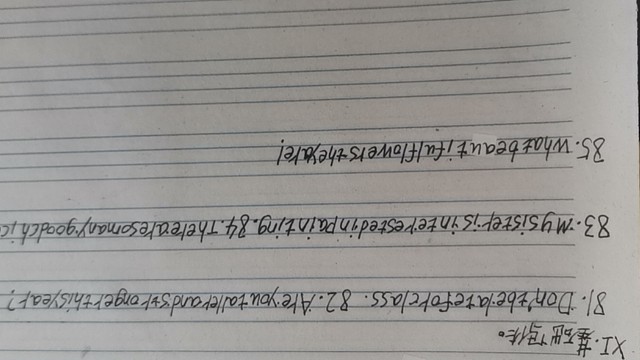 XI. 基础写作。
81. Don't be late for class. 82. Are you taller and stronger this year?
83. My sister is interested in painting. 84. There are so many good
85. What beautiful flowers they are!